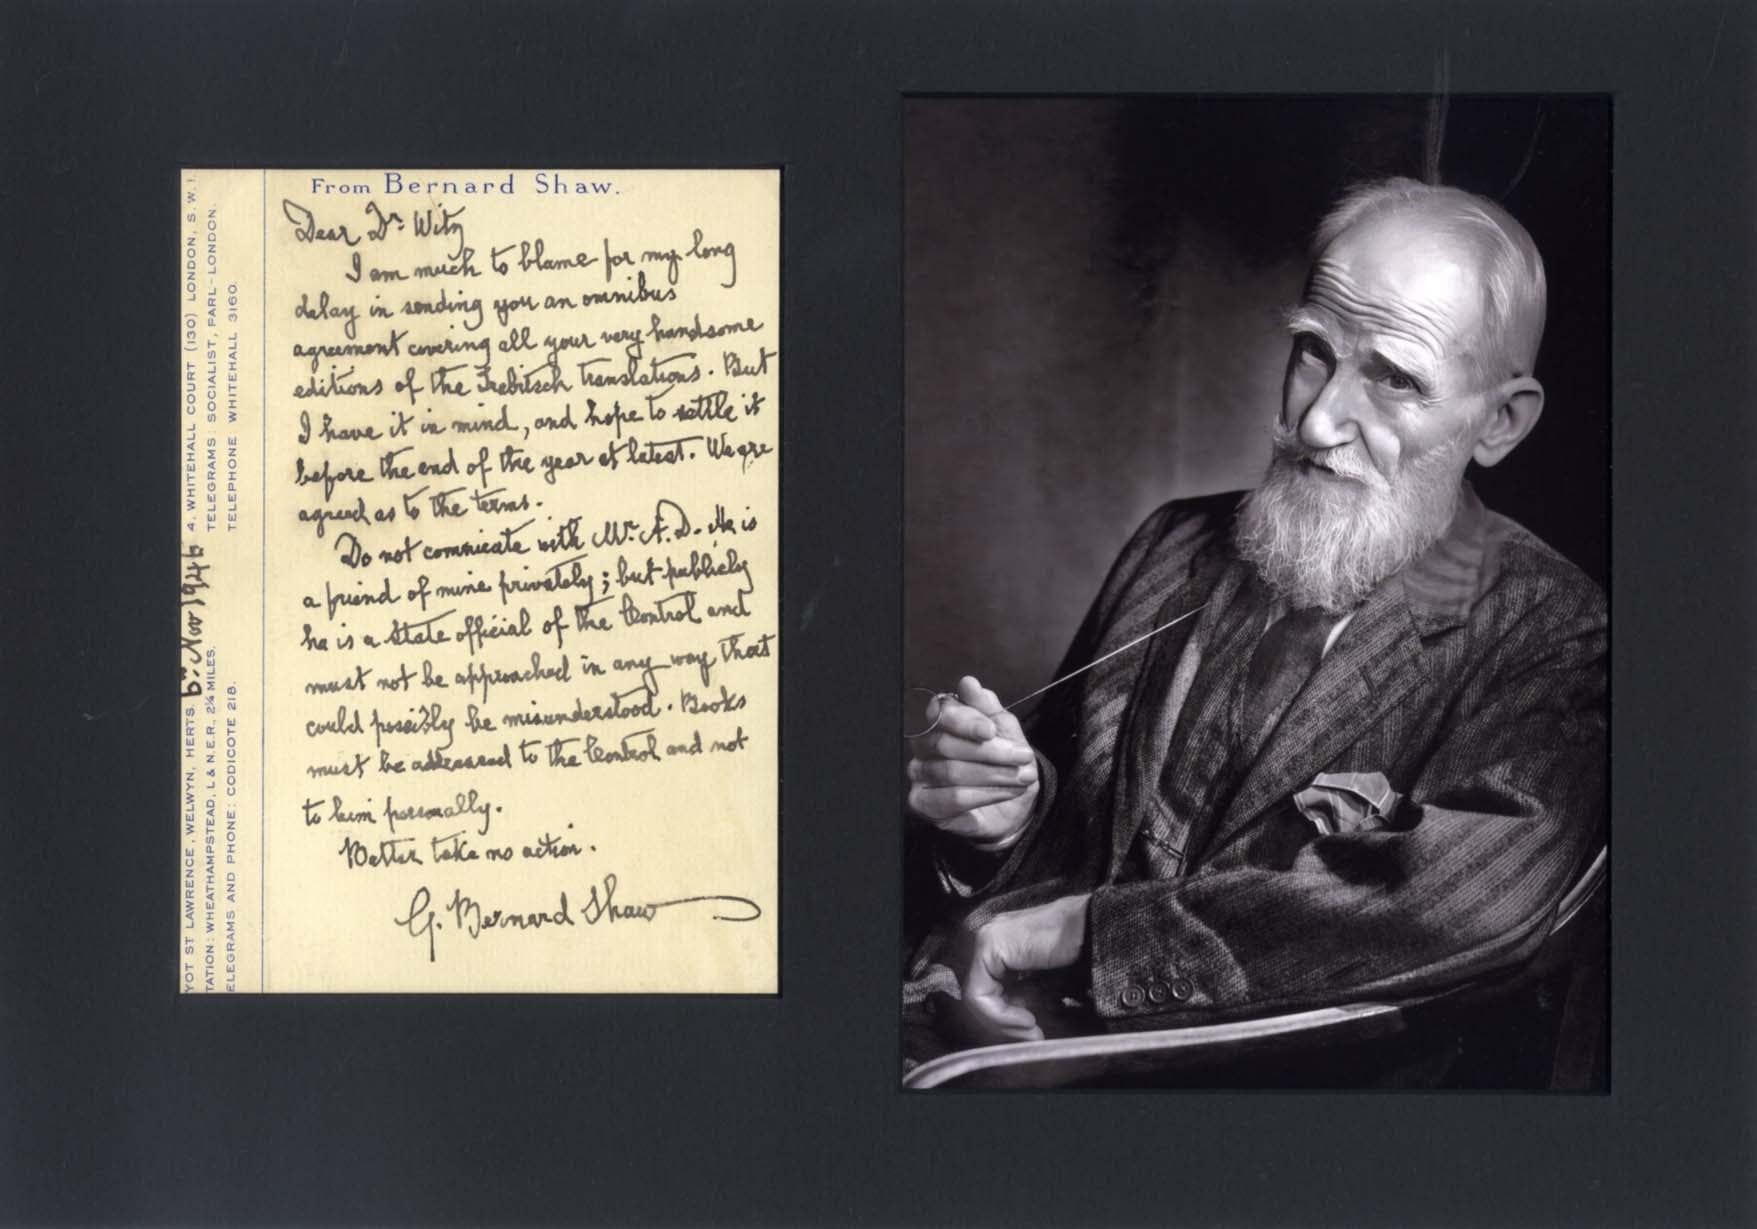 From Bernard Shaw.
Dear Dr. Witz
I am much to blame for my long
delay in sending you an omnibus
agreement covering all your very handsome
editions of the Trebitsch translations. But
I have it in mind, and hope to settle it
before the end of the year at latest. We are
agreed as to the terms.
Do not comnicate with Mr. A.D. He is
a friend of mine privately; but publicly
he is a State official of the Control and
must not be approached in any way that
could possibly be misunderstood. Books
must be addressed to the Control and not
to him personally.
Better take no action.
G. Bernard Shaw
YOT ST LAWRENCE, WELWYN, HERTS. 6th Nov 1946 4, WHITEHALL COURT (130) LONDON, S.W.1.
TATION: WHEATHAMPSTEAD, L & N.E.R., 2¼ MILES. TELEGRAMS: SOCIALIST, PARL-LONDON.
ELEGRAMS AND PHONE: CODICOTE 218. TELEPHONE WHITEHALL 3160.